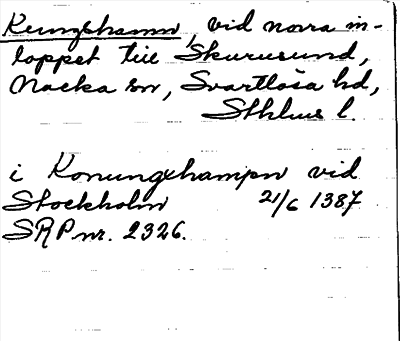 Kungshamn, vid norra in-
loppet till Skurusund,
Nacka sn, Svartlösa hd,
Sthlms l.
i Konungxhampn vid
Stockholm 21/6 1387
SRP nr. 2326.